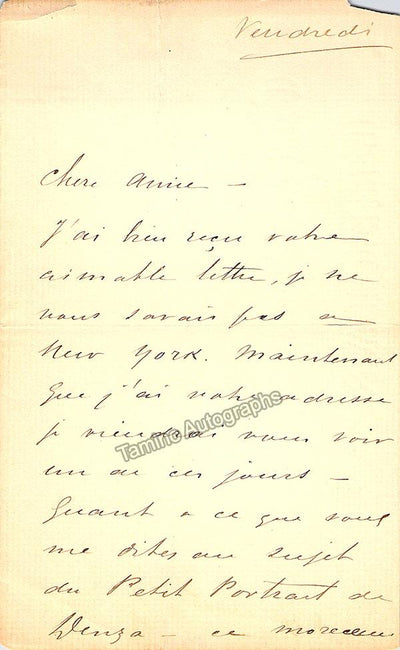 Vendredi
Chère Amie —
J'ai bien reçu votre
aimable lettre, je ne
vous savais pas a
New York. Maintenant
que j'ai votre adresse
je viendrai vous voir
un de ces jours —
Quant a ce que vous
me dites au sujet
du Petit Portrait de
Denza — ce morceau
Tamino Autographs